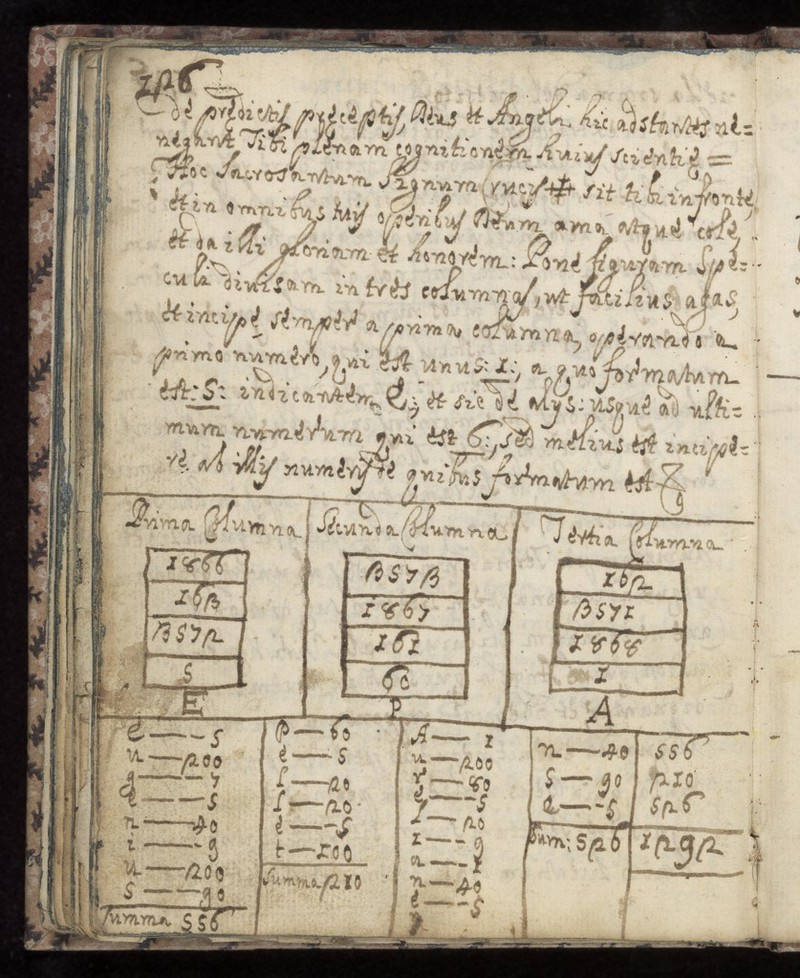 126
de prędictis pręceptis, Deus et Angeli hic adstantes ne=
negant Tibi plenam cognitionem huius scientię =
Hoc Sacrosantum Signum Crucis ✠ sit tibi in fronte,
et in omnibus tuis operibus Deum ama atque cole,
et da illi gloriam et honorem: Pone figuram Spe=
culi divisam in tres columnas, ut facilius agas,
et incipe semper a prima columna, operando a
primo numero, qui est unus: 1:, a quo formatum
est: 5: indicantem E; et sic de alys: usque ad ulti=
mum numerum qui est 6:, sed melius est incipe=
re ab illis numeris de quibus formatum est
Prima Columna Secunda Columna Tertia Columna
1866 3573 162
163 1867 3571
3572 161 1868
5 60 1
E P A
e — 5 P — 60 A — 1 n — 40 556
u — 200 e — 5 u — 200 s — 90 210
g — 7 l — 20 r — 80 e — 5 526
e — 5 l — 20 e — 5 Sum: 526 1292
n — 40 e — 5 l — 20
i — 9 t — 100 i — 9
u — 200 Summa 210 a — 1
s — 90 n — 40
Summa 556 e — 5